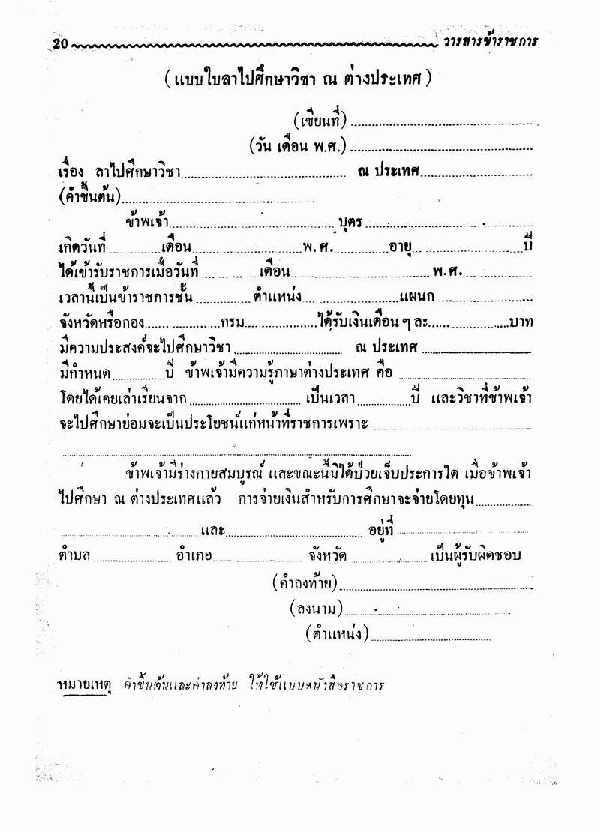 20 วารสารข้าราชการ
(แบบใบลาไปศึกษาวิชา ณ ต่างประเทศ)
(เขียนที่)
(วัน เดือน พ.ศ.)
เรื่อง ลาไปศึกษาวิชา ณ ประเทศ
(คำขึ้นต้น)
ข้าพเจ้า บุตร
เกิดวันที่ เดือน พ.ศ. อายุ ปี
ได้เข้ารับราชการเมื่อวันที่ เดือน พ.ศ.
เวลานี้เป็นข้าราชการชั้น ตำแหน่ง แผนก
จังหวัดหรือกอง กรม ได้รับเงินเดือนๆ ละ บาท
มีความประสงค์จะไปศึกษาวิชา ณ ประเทศ
มีกำหนด ปี ข้าพเจ้ามีความรู้ภาษาต่างประเทศ คือ
โดยได้เคยเล่าเรียนจาก เป็นเวลา ปี และวิชาที่ข้าพเจ้า
จะไปศึกษาย่อมจะเป็นประโยชน์แก่หน้าที่ราชการเพราะ
ข้าพเจ้ามีร่างกายสมบูรณ์ และขณะนี้มิได้ป่วยเจ็บประการใด เมื่อข้าพเจ้า
ไปศึกษา ณ ต่างประเทศแล้ว การจ่ายเงินสำหรับการศึกษาจะจ่ายโดยทุน
และ อยู่ที่
ตำบล อำเภอ จังหวัด เป็นผู้รับผิดชอบ
(คำลงท้าย)
(ลงนาม)
(ตำแหน่ง)
หมายเหตุ คำขึ้นต้นและคำลงท้าย ให้ใช้แบบหนังสือราชการ